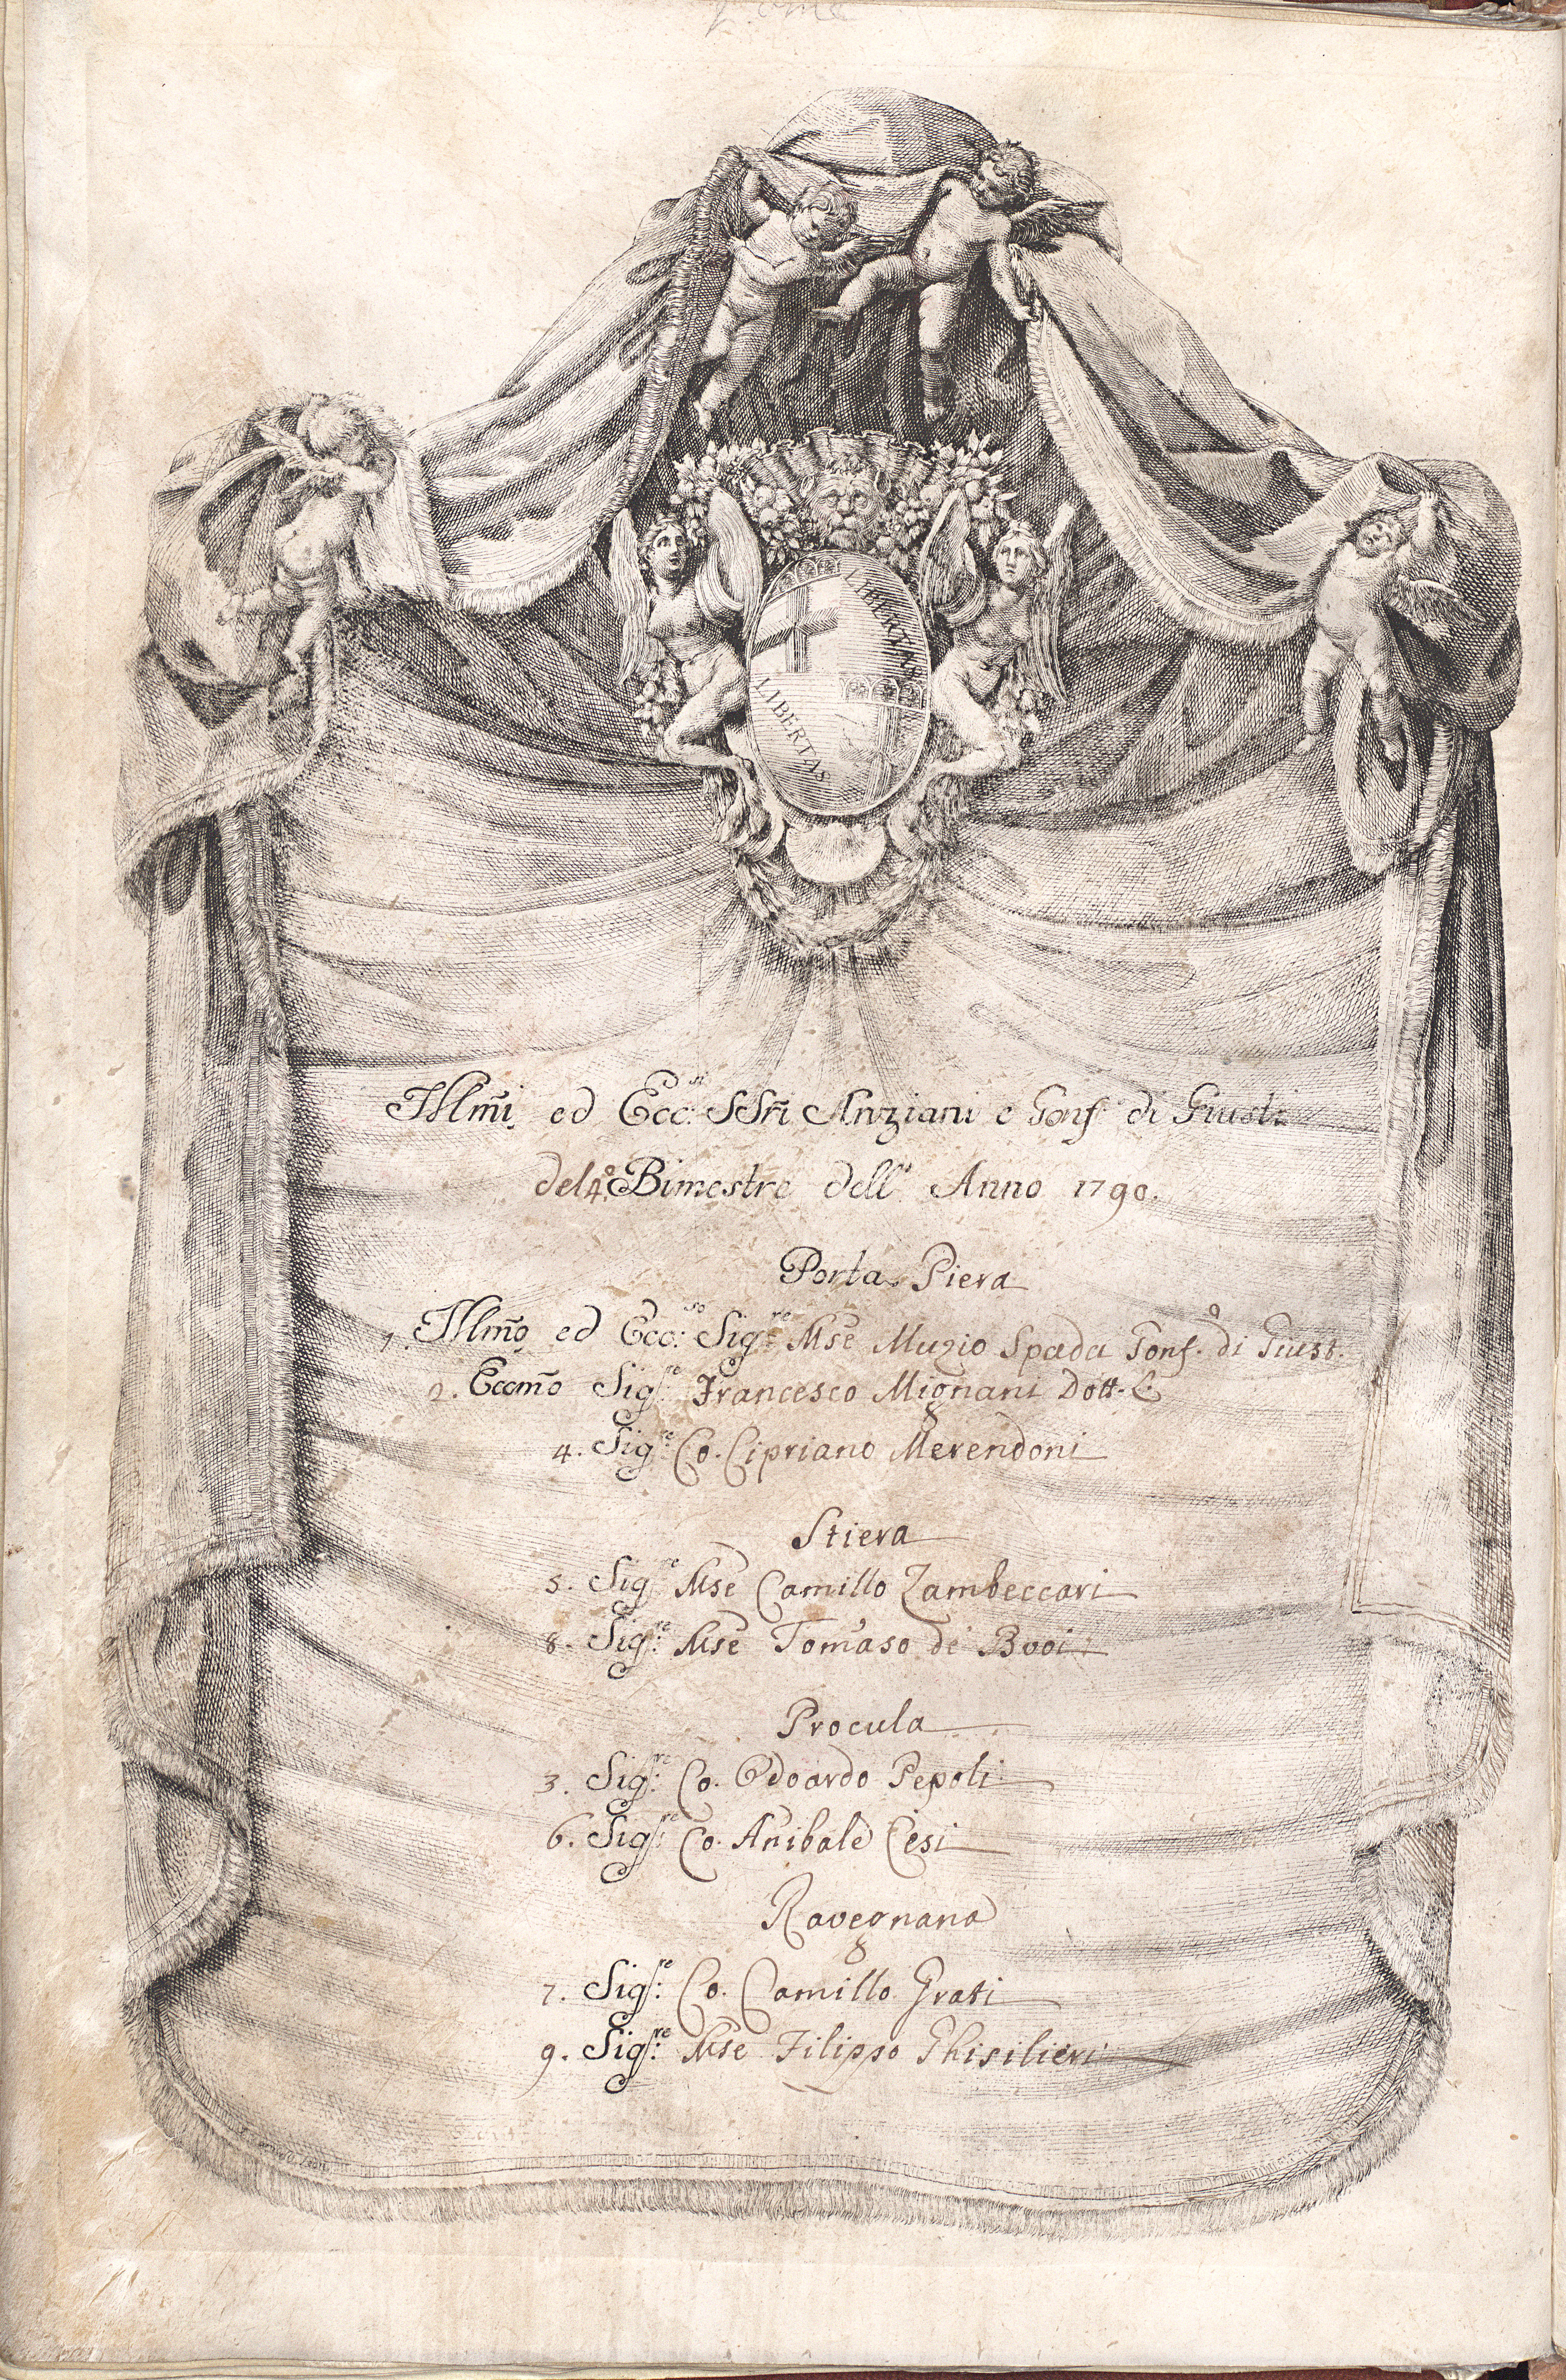 LIBERTAS
LIBERTAS
Illm̃i ed Ecc:si SSrĩ Anziani e Gonf. di Giusti
del 4.º Bimestre dell' Anno 1790.
Porta Piera
1. Illm̃o ed Ecc:so Sig:re Mse Muzio Spada Gonf.º di Giust.
2. Eccm̃o Sig:re Francesco Mignani Dott. C.
4. Sig:re Co. Cipriano Merendoni
Stiera
5. Sig:re Mse Camillo Zambeccari
8. Sig:re Mse Tom̃aso de' Bvoi
Procula
3. Sig:re Co. Odoardo Pepoli
6. Sig:re Co. Anibale Cesi
Ravegnana
7. Sig:re Co. Camillo Grati
9. Sig:re Mse Filippo Ghisilieri